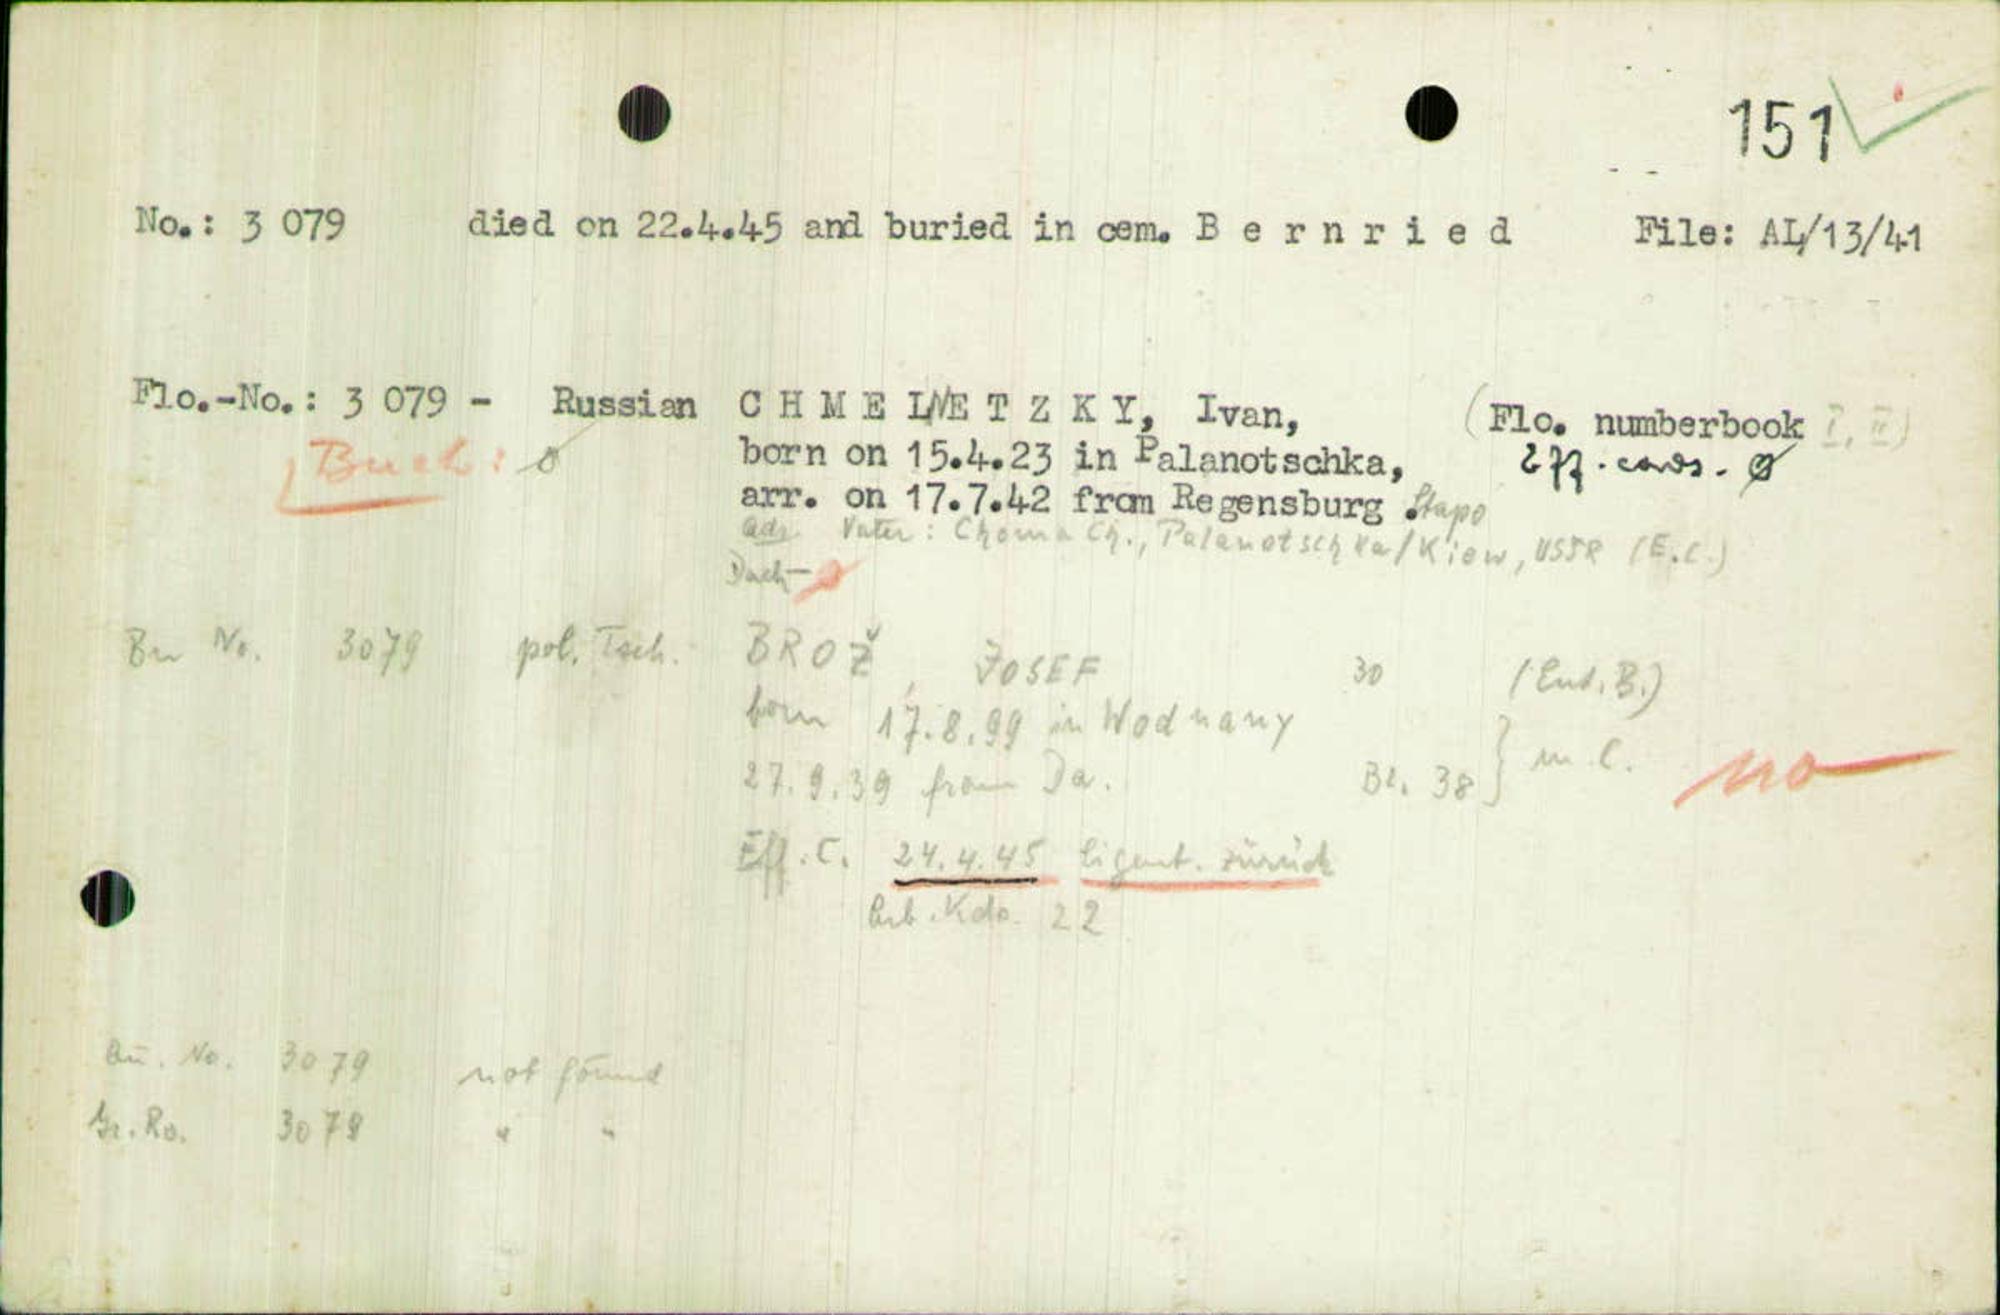 151
No.: 3 079 died on 22.4.45 and buried in cem. B e r n r i e d File: AL/13/41
Flo.-No.: 3 079 - Russian C H M E L N E T Z K Y, Ivan, (Flo. numberbook I, II)
Buch: ø born on 15.4.23 in Palanotschka, Eff. cards. ø
arr. on 17.7.42 from Regensburg. Stapo
adr. Vater: Choma Ch., Palanotschka/Kiew, USSR (E.C.)
Dach- ø
Bu No. 3079 pol. Tsch. BROŽ, JOSEF 30
born 17.8.99 in Wodnany
27.9.39 from Da. Bl. 38 } m. C. no
Eff. C. 24.4.45 Eigent. zurück
Arb. Kdo. 22
Au. No. 3079 not found
Gr. Ro. 3079 " "